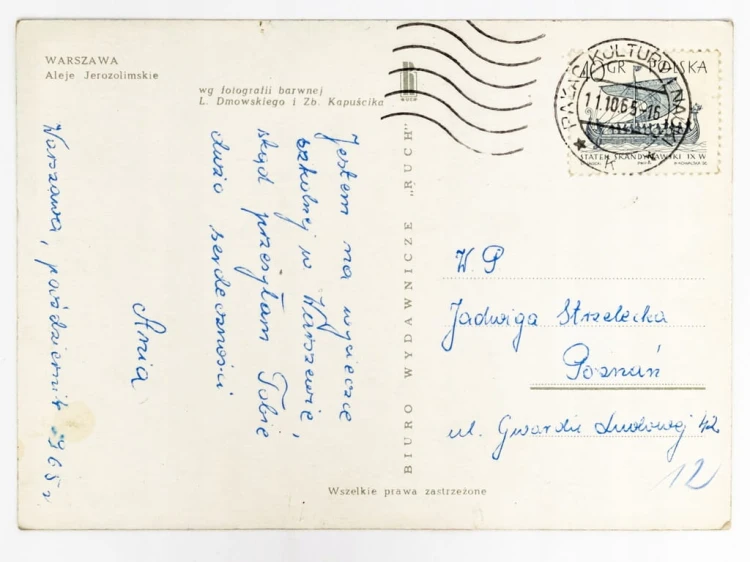 WARSZAWA
Aleje Jerozolimskie
wg fotografii barwnej
L. Dmowskiego i Zb. Kapuścika
RUCH
BIURO WYDAWNICZE "RUCH"
Wszelkie prawa zastrzeżone
40 GR POLSKA
STATEK SKANDYNAWSKI IX W
PAŁAC KULTURY I NAUKI
11.10.65-16
Jestem na wycieczce
szkolnej w Warszawie,
skąd przesyłam Tobie
dużo serdeczności
Ania
Warszawa, październik 1965 r
W.P
Jadwiga Strzelecka
Poznań
ul. Gwardii Ludowej 42
12